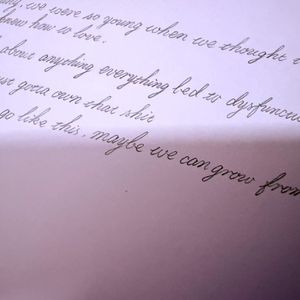 we were so young when we thought
know how to love.
about anything everything led to dysfunction
gotta own that shit
go like this, maybe we can grow from